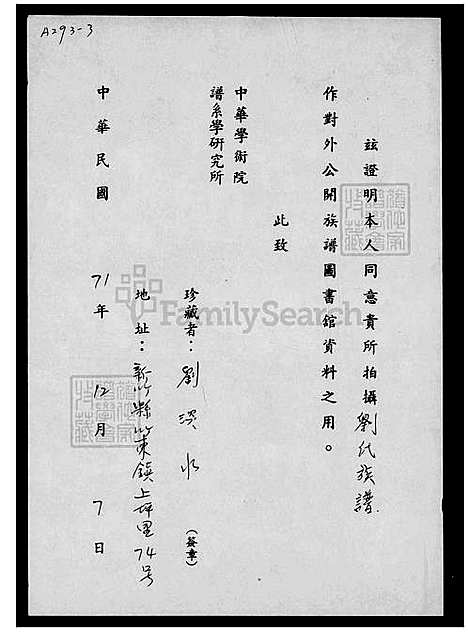 A293-3
茲證明本人同意貴所拍攝劉氏族譜
作對外公開族譜圖書館資料之用。
此致
中華學術院
譜系學研究所
珍藏者：劉 水 (簽章)
地址：新竹縣竹東鎮上坪里74号
中華民國 71年 12月 7日
FamilySearch